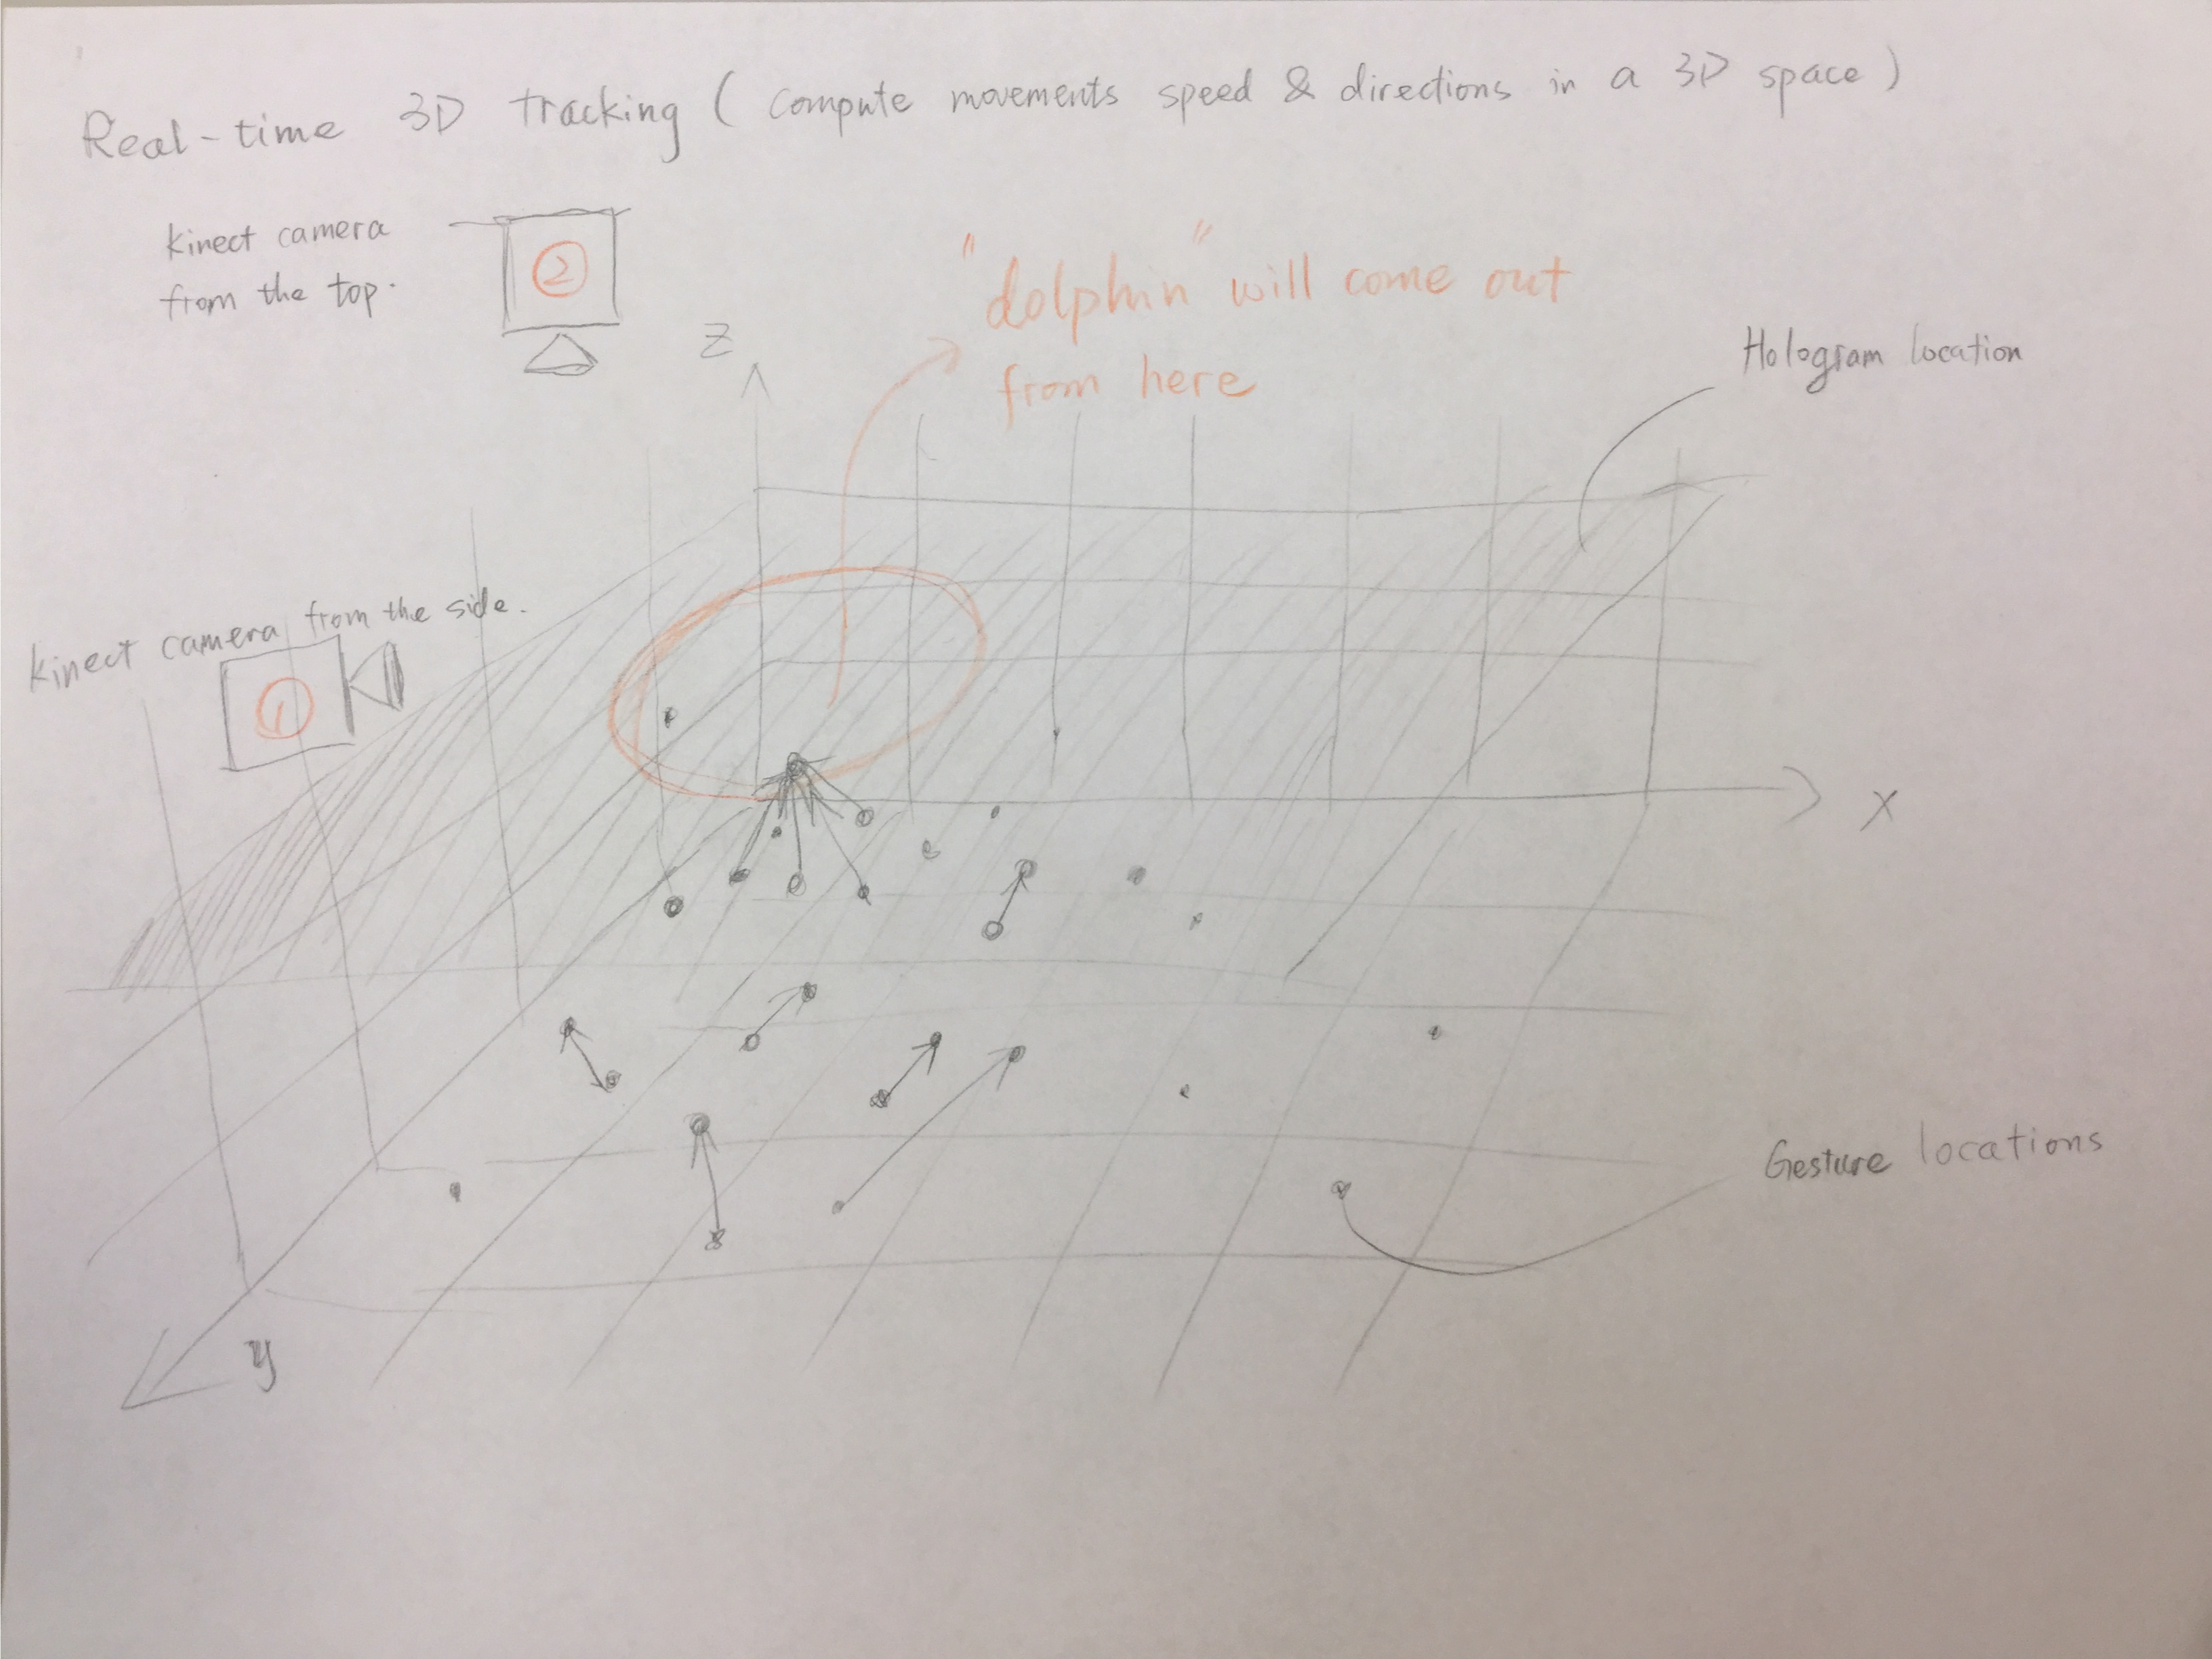 Real-time 3D tracking ( compute movements speed & directions in a 3D space )
kinect camera
from the top.
2
"dolphin" will come out
from here
Z
Hologram location
kinect camera from the side.
1
X
Gesture locations
y